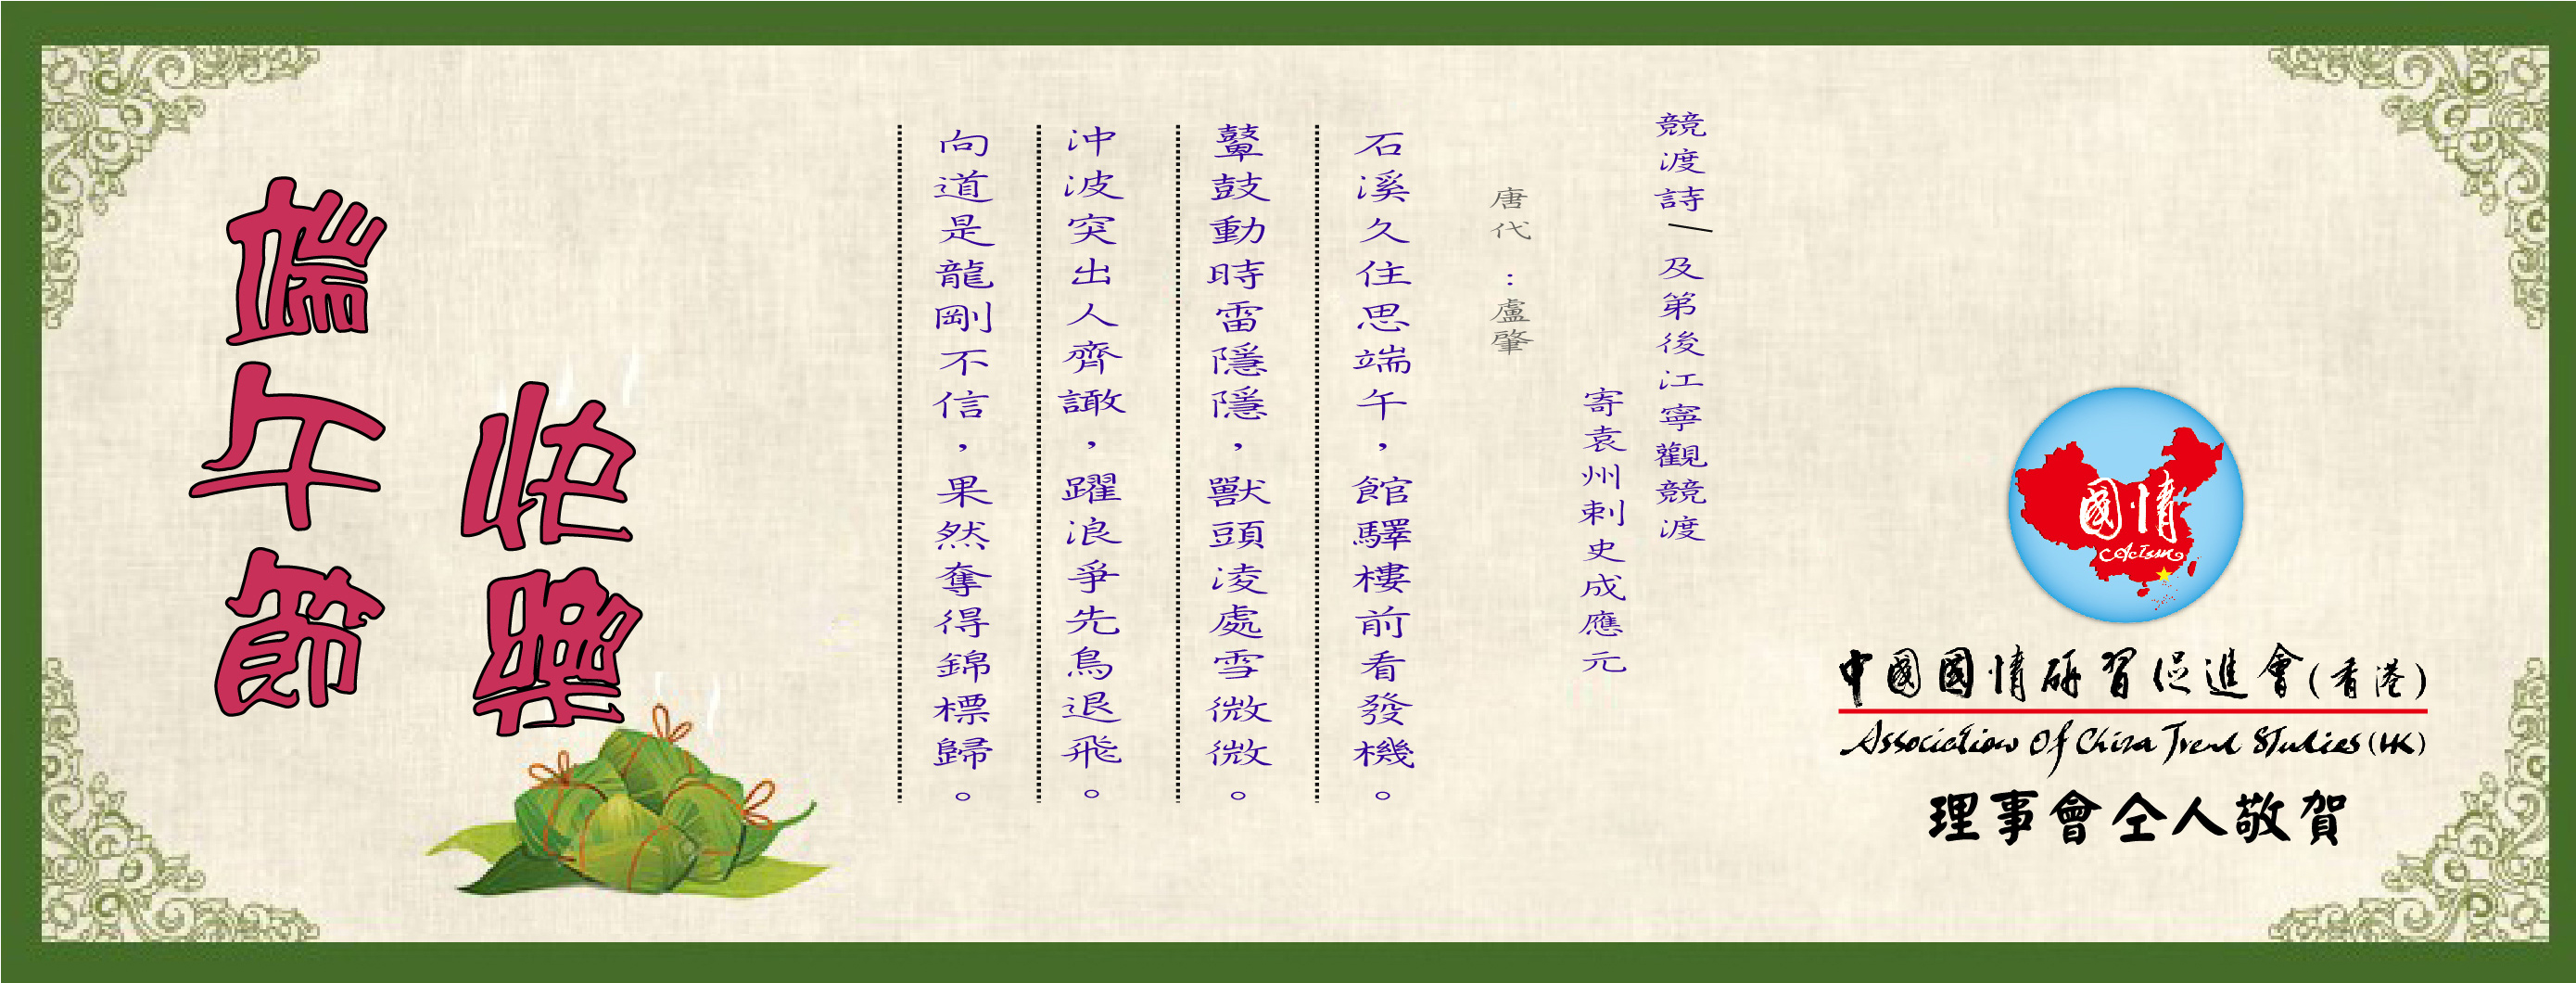 競渡詩/及第後江寧觀競渡
寄袁州刺史成應元
唐代：盧肇
石溪久住思端午，館驛樓前看發機。
鼙鼓動時雷隱隱，獸頭凌處雪微微。
沖波突出人齊譀，躍浪爭先鳥退飛。
向道是龍剛不信，果然奪得錦標歸。
端午節
快樂
國情
CACTSM
中國國情研習促進會(香港)
Association Of China Trend Studies (HK)
理事會仝人敬賀